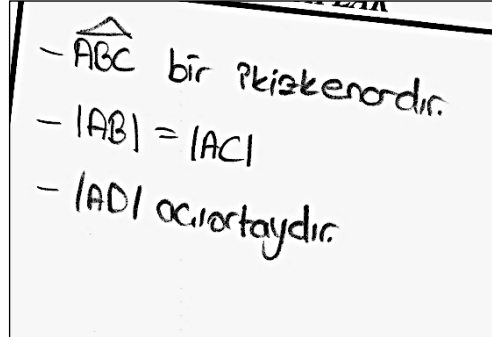 - ABC bir ikizkenardır.
- |AB| = |AC|
- |AD| açıortaydır.